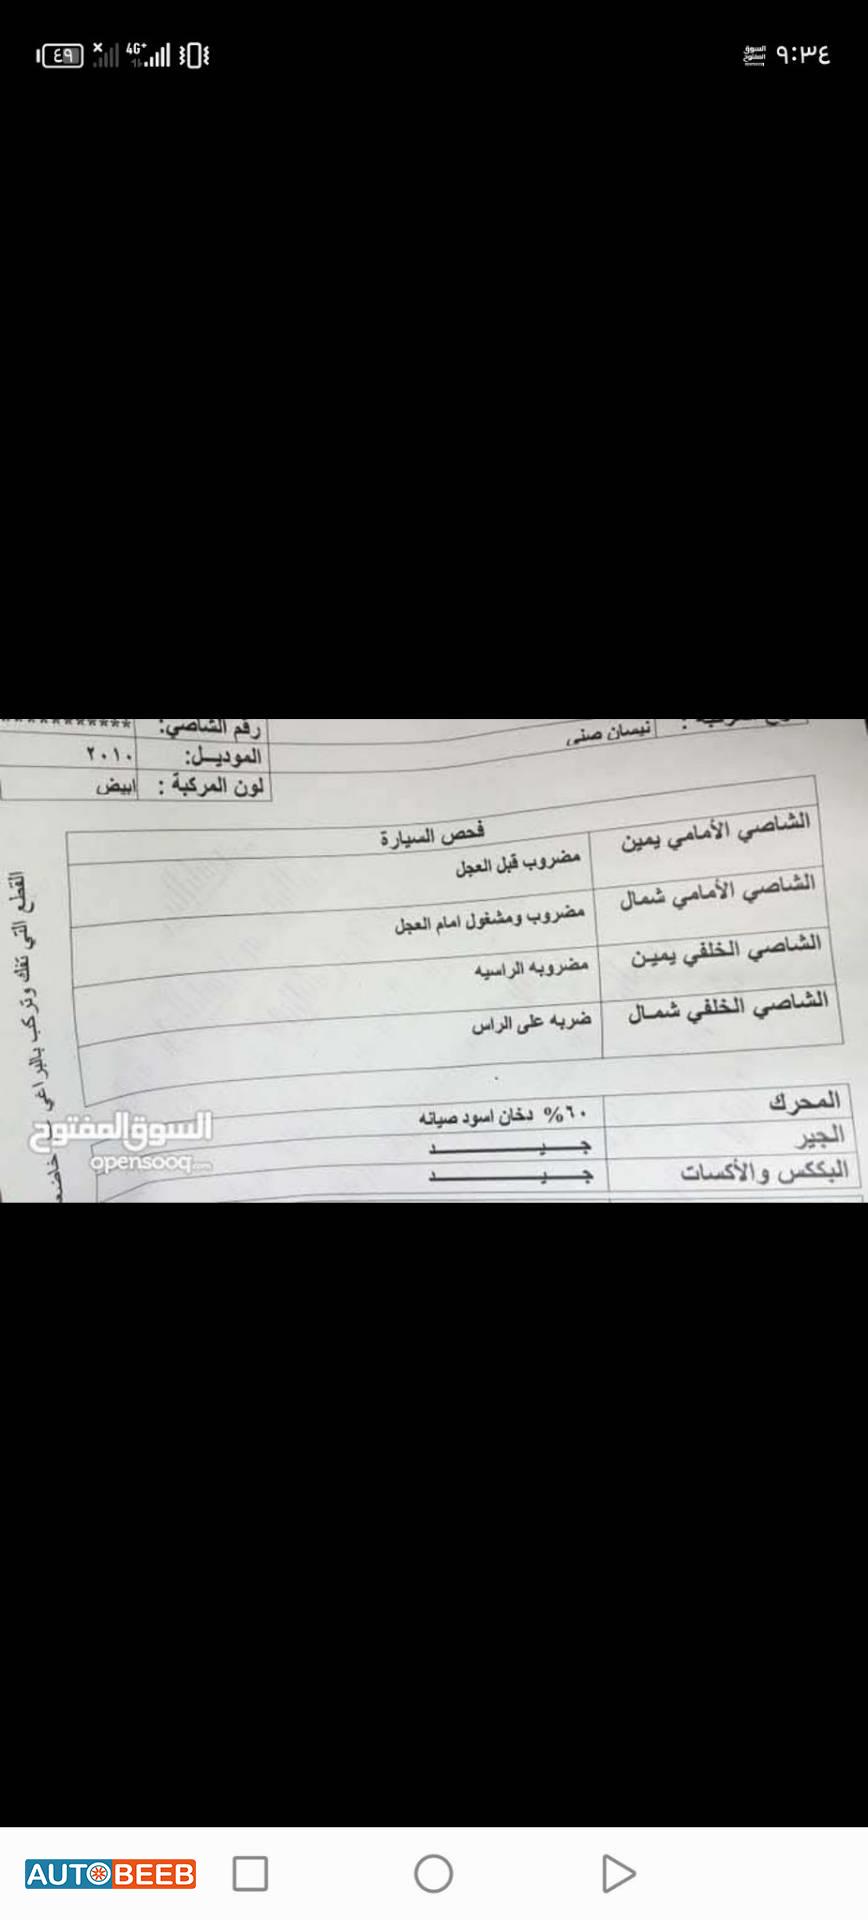 ٩:٣٤
السوق المفتوح
4G+
٤٩
نيسان صني
رقم الشاصي: ***********
الموديل: ٢٠١٠
لون المركبة : ابيض
فحص السيارة
الشاصي الأمامي يمين مضروب قبل العجل
الشاصي الأمامي شمال مضروب ومشغول امام العجل
الشاصي الخلفي يمين مضروبه الراسيه
الشاصي الخلفي شمال ضربه على الراس
المحرك ٦٠% دخان اسود صيانه
الجير جيد
البككس والأكسات جيد
القطع التي تفك وتركب بالبراغي
السوق المفتوح
opensooq.com
AUTOBEEB